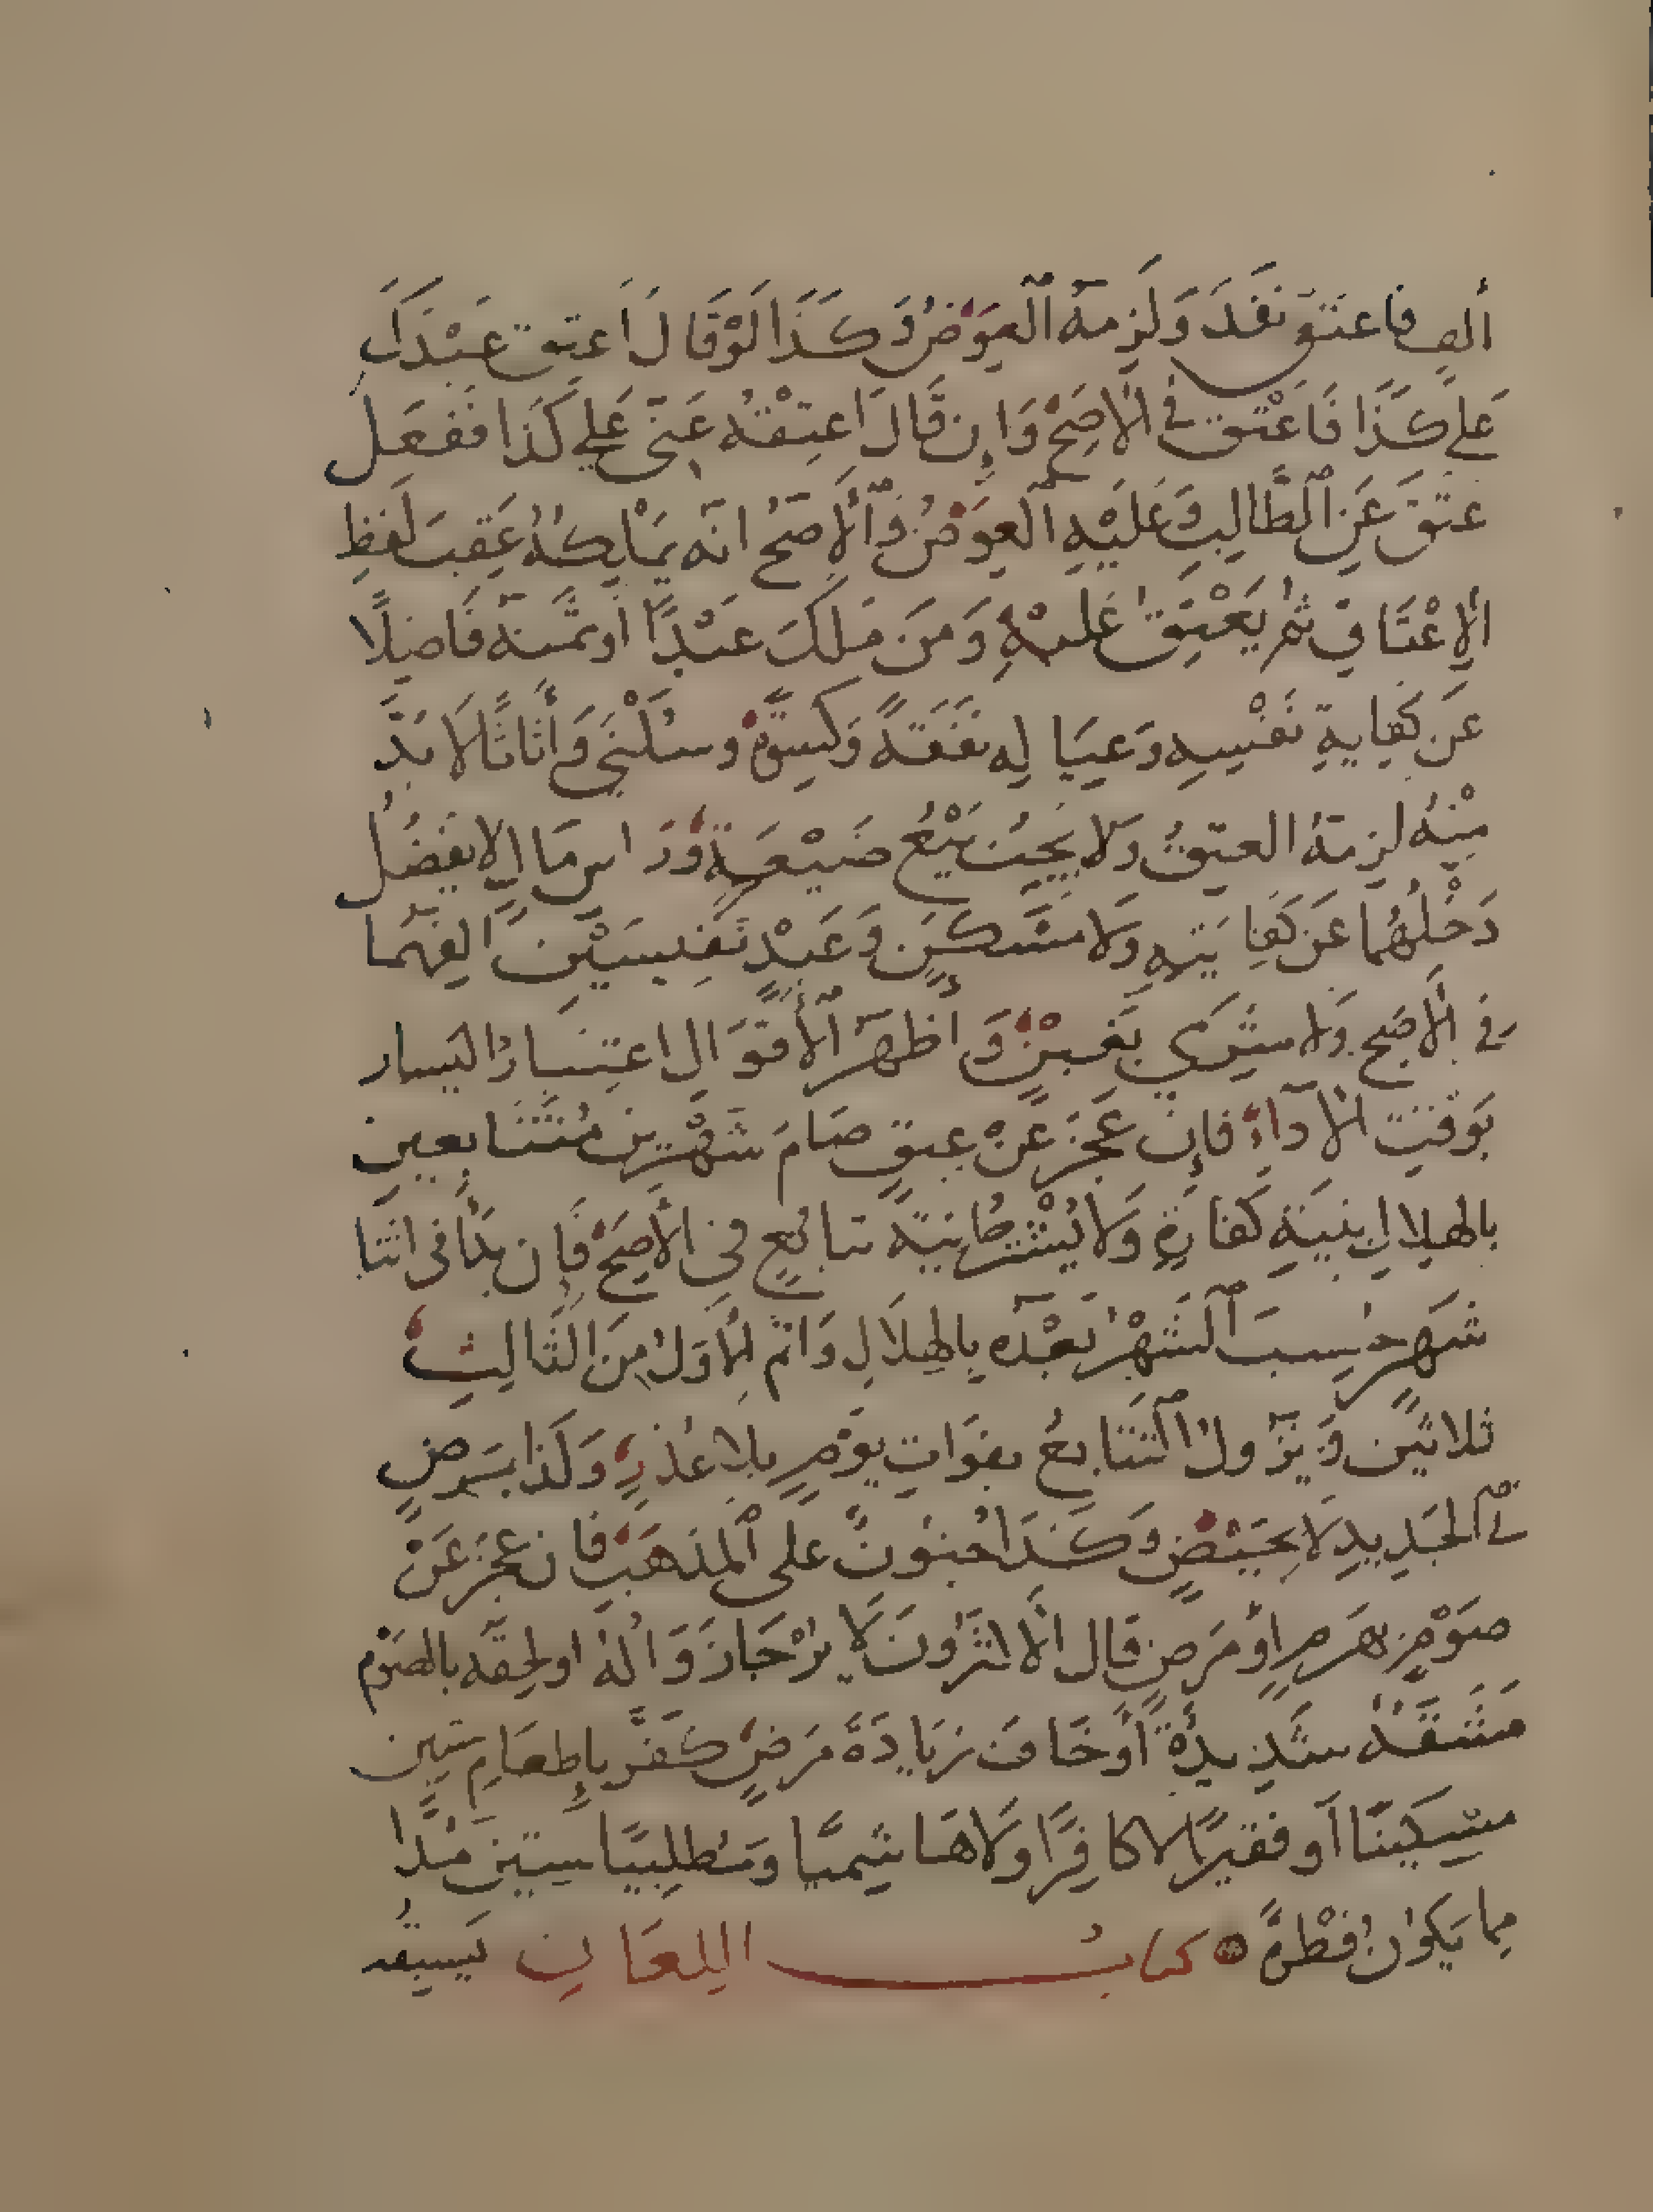 ألف فاعتق نفذ وَلَزِمهُ العِوَضُ وَكَذَا لَوْ قَالَ اَعتق عَبْدَكَ
عَلَى كَذَا فَاَعْتَق في الاَصَحِّ وَاِن قَالَ اَعتِقْهُ عَنِّي عَلى كَذَا فَفعَل
عتَقَ عَنِ الطَّالِبِ وَعَلَيْهِ العِوَضُ وَالاَصَحُّ انَّه يَمْلِكُهُ عَقِبَ لَفظِ
الاِعْتَاقِ ثم يَعْتِقُ عَليْهِ وَمَن مَلَكَ عَبْدًا اَو ثمَنَه فَاضِلًا
عَن كِفايةِ نَفْسِهِ وَعِيَالِه نَفَقَةً وَكِسْوَةً وسُكْنَى وَأثَاثًا لَا بُدَّ
مِنْهُ لزِمَهُ العِتقُ وَلا يَجِبُ بَيْعُ ضَيْعَةٍ وَرَاسِ مَالٍ لا يَفضُل
دَخْلُهُمَا عَن كِفَايَتِهِ وَلا مَسْكَنٍ وَعَبْدٍ نَفِيسَيْن اَلِفَهُمَا
في الاَصَحِّ وَلا شِرًى بِغَبْنٍ وَاَظهَرُ الأقوَالِ اعتِبَارُ اليَسار
بوَقت الاَدَاءِ فَإِن عَجَزَ عَنْ عِتقٍ صَامَ شَهْرَين مُتَتَابِعين
بالهِلالِ بنيَةِ كَفارَةٍ وَلا يُشْتَرَطُ نيَّة تتابُعٍ في الأصَحِّ فَاِن بَدَأ في اثنا
شَهرٍ حُسِبَ الشَهْرُ بَعْدَه بِالهِلَالِ وَاتم الاَوَّلُ مِنَ الثَّالِثِ
ثلاثينَ وَيَزولُ التَتَابعُ بفَوَاتِ يَوْمٍ بِلا عُذرٍ وَكَذَا بمَرضٍ
في الجَدِيدِ لَا بِحَيْضٍ وَكَذَا جُنُونٌ على المَذهَبِ فَاِن عَجَزَ عَنْ
صَوْمٍ بهَرَمٍ اَوْ مَرَضٍ قَالَ الاكثَرُونَ لَا يُرْجَا زَوَالُهُ او لحِقَه بالصَوْم
مَشَقَّةٌ شَدِيدَةٌ اَوْ خَافَ زِيَادَةَ مَرَضٍ كَفَّرَ بِإِطعَامِ ستين
مِسْكِينًا اَو فقيرًا لا كافِرًا وَلا هَاشِميًّا ومُطلِبيًّا سِتينَ مُدًّا
مما يَكُونُ فِطْرَةً كتابُ اللِعَانِ يَسبِقُه